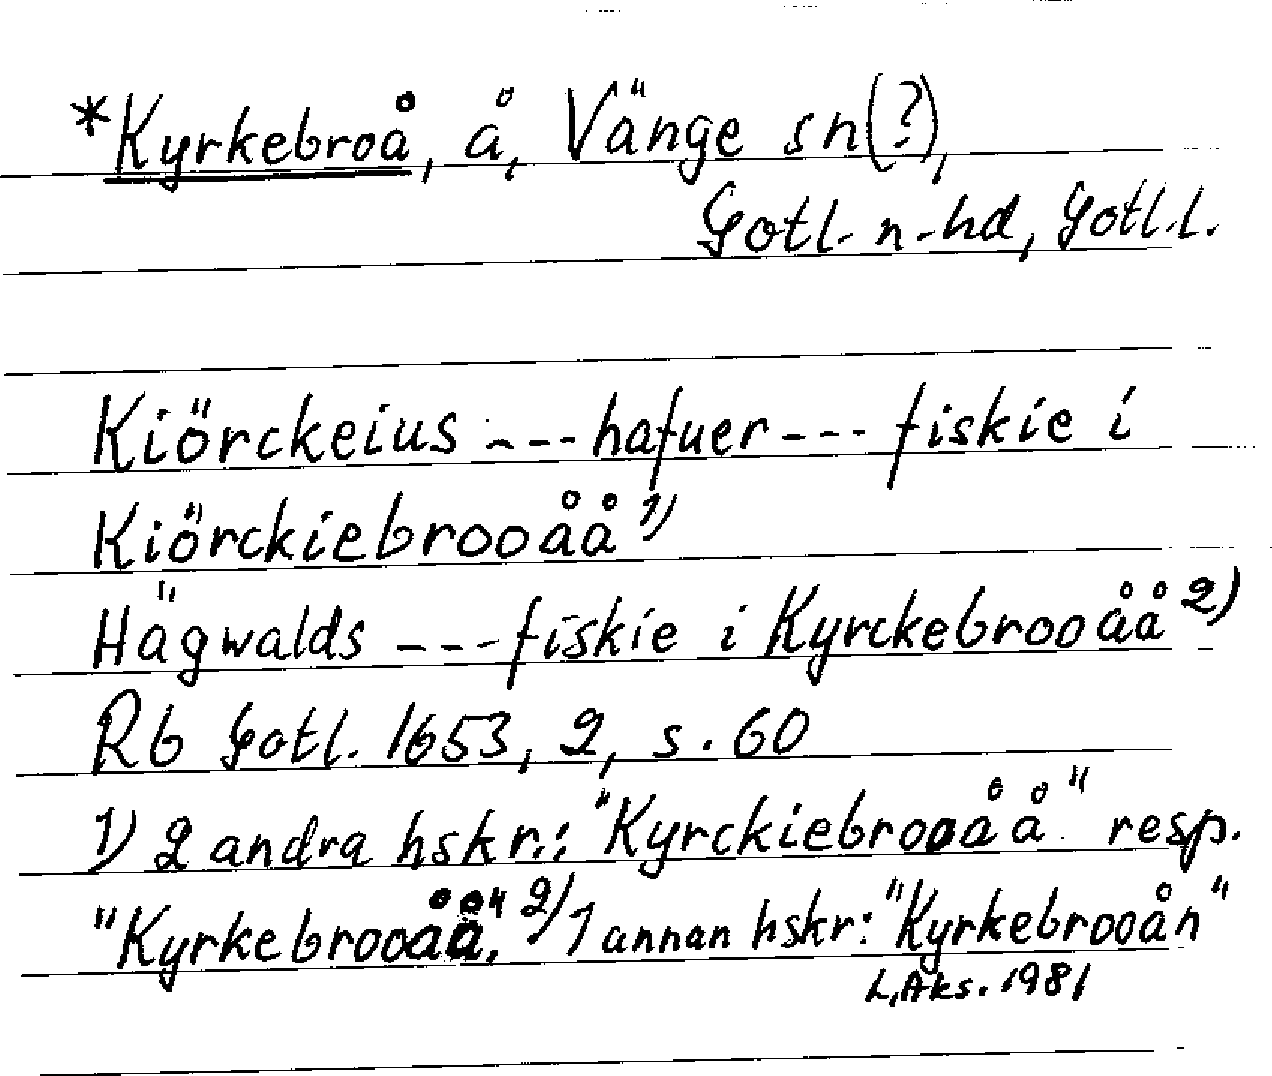 *Kyrkebroå, å, Vänge sn(?),
Gotl. n. hd, Gotl.l.
Kiörckeius --- hafuer --- fiskie i
Kiörckiebrooåå 1)
Hägwalds --- fiskie i Kyrckebrooåå 2)
Rb Gotl. 1653, 2, s. 60
1) 2 andra hskr.: "Kyrckiebrooåå" resp.
"Kyrkebrooåå". 2) 1 annan hskr: "Kyrkebrooån"
L, Aks. 1981